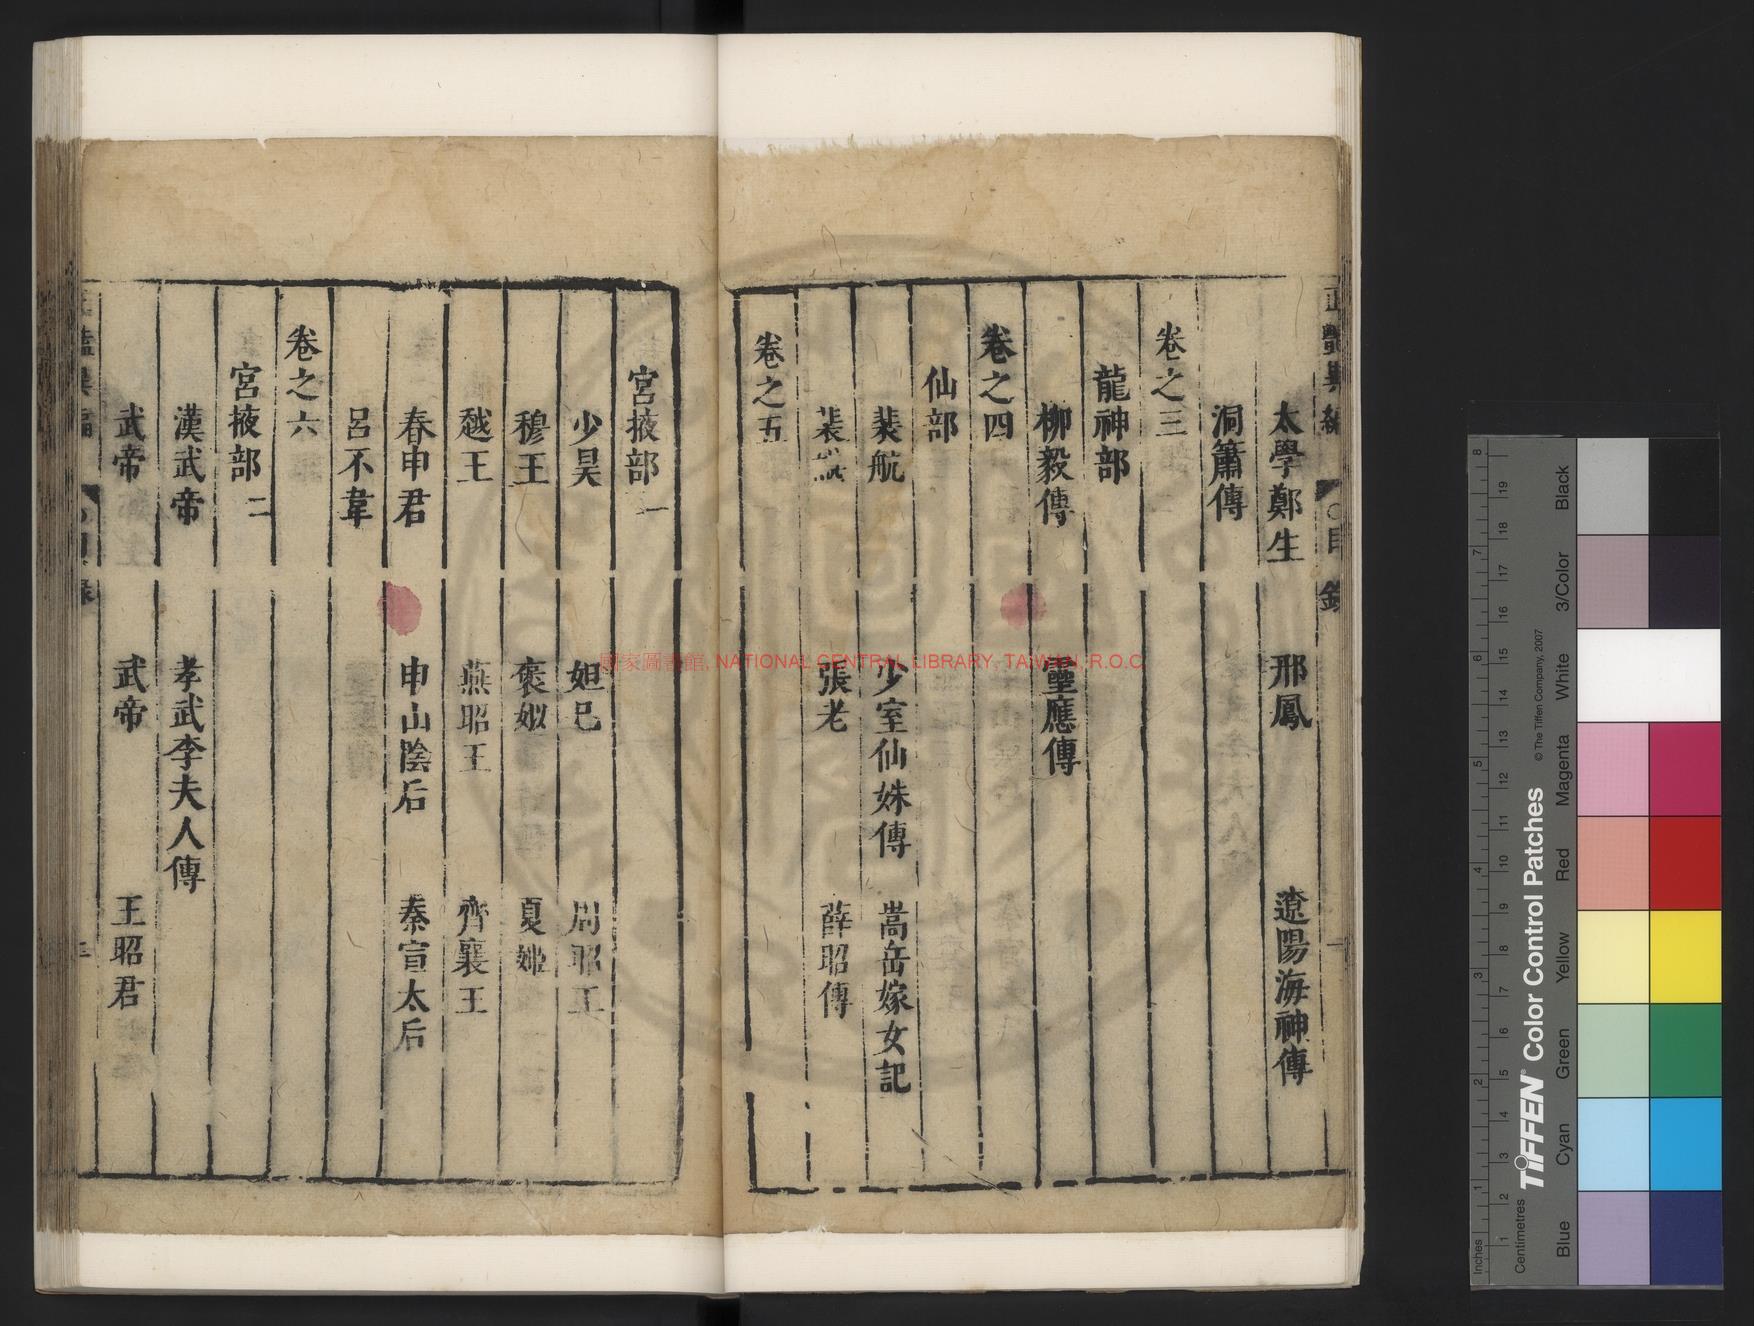 太學鄭生 邢鳳 遼陽海神傳
洞簫傳
卷之三
龍神部
柳毅傳 靈應傳
卷之四
仙部
裴航 少室仙姝傳 嵩岳嫁女記
張老 薛昭傳
卷之五
宮掖部一
少昊 妲己 周昭王
穆王 褒姒 夏姬
越王 燕昭王 齊襄王
春申君 申山陰后 秦宣太后
呂不韋
卷之六
宮掖部二
漢武帝 孝武李夫人傳
武帝 武帝 王昭君
國家圖書館, NATIONAL CENTRAL LIBRARY, TAIWAN, R.O.C
Inches
Centimetres
TIFFEN® Color Control Patches
© The Tiffen Company, 2007
Blue
Cyan
Green
Yellow
Red
Magenta
White
3/Color
Black